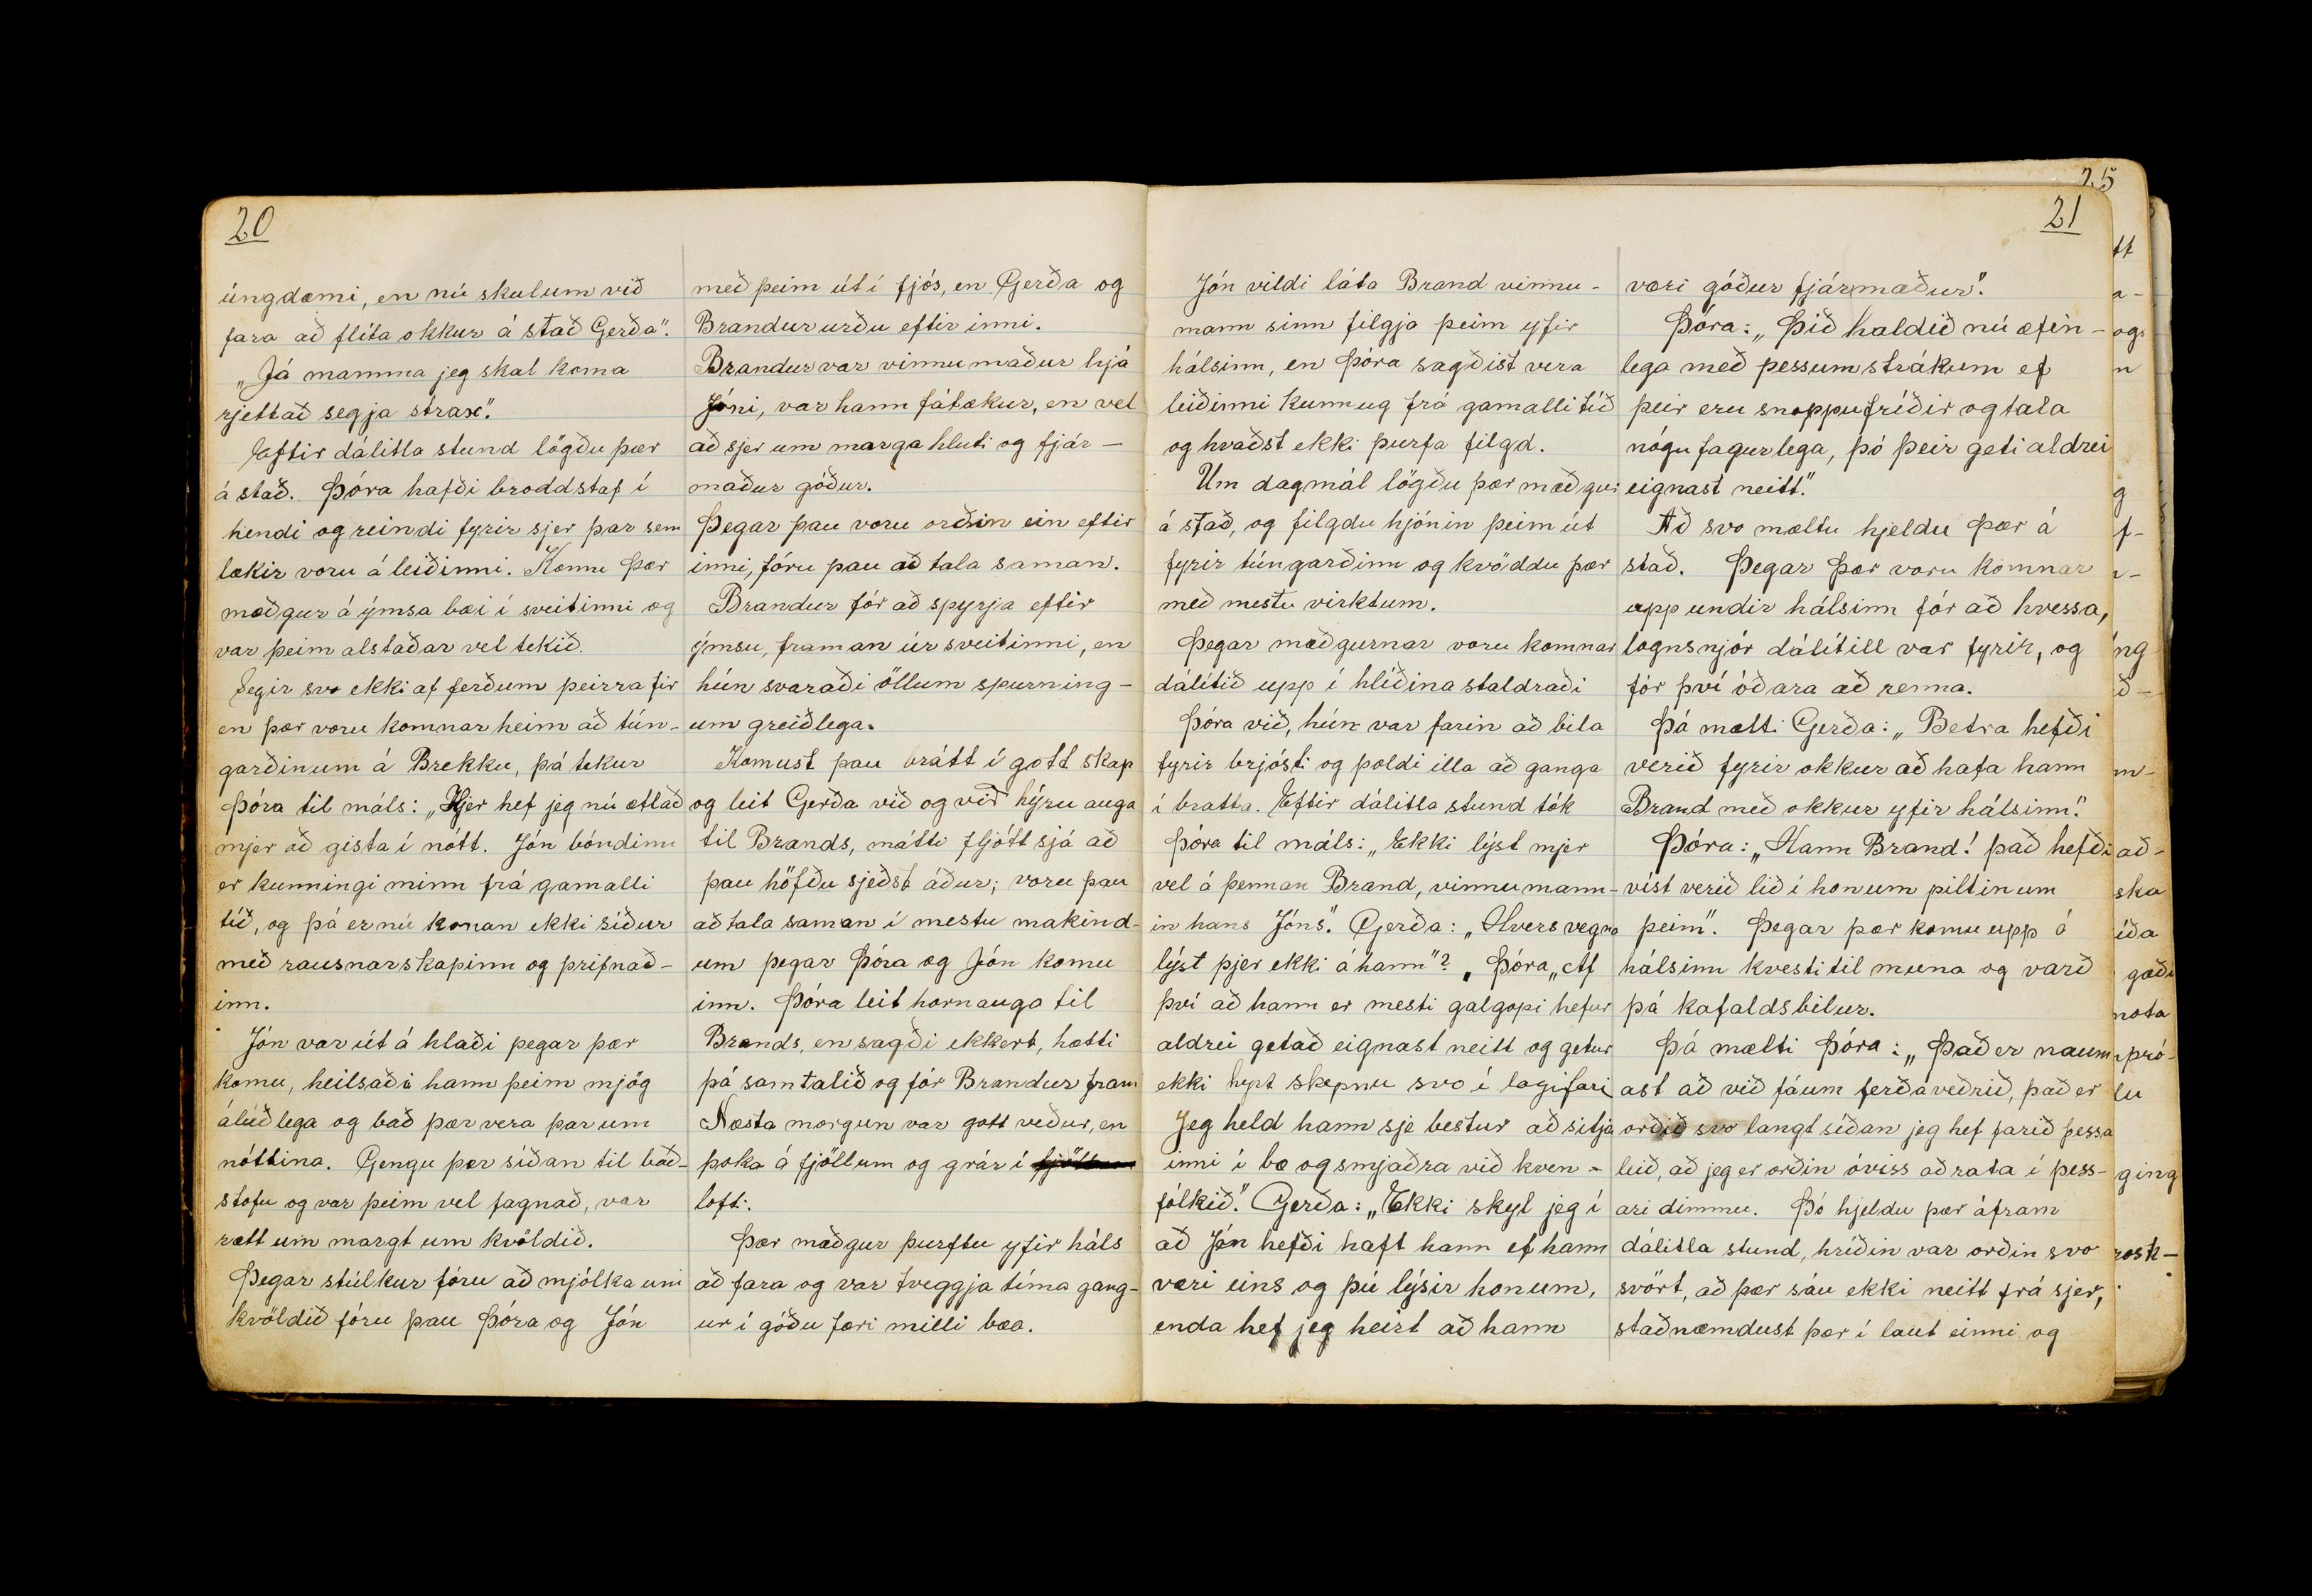 20
úngdæmi, en nú skulum við
fara að flíta okkur á stað Gerða".
„Já mamma jeg skal koma
rjettað segja strax".
Eftir dálitla stund lögðu þær
á stað. Þóra hafði broddstaf í
hendi og reindi fyrir sjer þar sem
lækir voru á leiðinni. Komu þær
mæðgur á ýmsa bæi í sveitinni og
var þeim alstaðar vel tekið.
Segir svo ekki af ferðum þeirra fir
en þær voru komnar heim að tún-
garðinum á Brekku, þá tekur
Þóra til máls: „Hjer hef jeg nú ætlað
mjer að gista í nótt. Jón bóndinn
er kunningi minn frá gamalli
tíð, og þá er nú konan ekki síður
með rausnarskapinn og þrifnað-
inn.
Jón var út á hlaði þegar þær
komu, heilsaði hann þeim mjög
álúðlega og bað þær vera þar um
nóttina. Gengu þær síðan til bað-
stofu og var þeim vel fagnað, var
rætt um margt um kvöldið.
Þegar stúlkur fóru að mjólka um
kvöldið fóru þau Þóra og Jón
með þeim út í fjós, en Gerða og
Brandur urðu eftir inni.
Brandur var vinnumaður hjá
Jóni, var hann fátækur, en vel
að sjer um marga hluti og fjár-
maður góður.
Þegar þau voru orðin ein eftir
inni, fóru þau að tala saman.
Brandur fór að spyrja eftir
ýmsu, framan úr sveitinni, en
hún svaraði öllum spurning-
um greiðlega.
Komust þau brátt í gott skap
og leit Gerða við og við hýru auga
til Brands, mátti fljótt sjá að
þau höfðu sjeðst áður; voru þau
að tala saman í mestu makind-
um þegar Þóra og Jón komu
inn. Þóra leit hornauga til
Brands, en sagði ekkert, hætti
þá samtalið og fór Brandur fram
Næsta morgun var gott veður, en
þoka á fjöllum og grár í fjöllum
lofti.
Þær mæðgur þurftu yfir háls
að fara og var tveggja tíma gang-
ur í góðu færi milli bæa.
21
Jón vildi láta Brand vinnu-
mann sinn filgja þeim yfir
hálsinn, en Þóra sagðist vera
leiðinni kunnug frá gamalli tíð
og kvaðst ekki þurfa filgd.
Um dagmál lögðu þær mæðgur
á stað, og filgdu hjónin þeim út
fyrir túngarðinn og kvöddu þær
með mestu virktum.
Þegar mæðgurnar voru komnar
dálítið upp í hlíðina staldraði
Þóra við, hún var farin að bila
fyrir brjósti og þoldi illa að ganga
í bratta. Eftir dálitla stund tók
Þóra til máls: „Ekki lýst mjer
vel á þennan Brand, vinnumann-
in hans Jóns". Gerða: „Hvers vegna
lýst þjer ekki á hann"? „Þóra „Af
því að hann er mesti galgopi hefur
aldrei getað eignast neitt og getur
ekki hept skepnu svo í lagi fari
Jeg held hann sje bestur að sitja
inni í bæ og smjaðra við kven-
fólkið". Gerða: „Ekki skyl jeg í
að Jón hefði haft hann ef hann
væri eins og þú lýsir honum,
enda hef jeg heirt að hann
væri góður fjármaður".
Þóra: „Þið haldið nú æfin-
lega með þessum strákum ef
þeir eru snoppufríðir og tala
nógu fagurlega, þó þeir geti aldrei
eignast neitt".
Að svo mæltu hjeldu þær á
stað. Þegar þær voru komnar
upp undir hálsinn fór að hvessa,
lognsnjór dálítill var fyrir, og
fór því óðara að renna.
Þá mælti Gerða: „Betra hefði
verið fyrir okkur að hafa hann
Brand með okkur yfir hálsinn".
Þóra: „Hann Brand! það hefði
víst verið lið í honum piltinum
þeim". Þegar þær komu upp á
hálsinn kvesti til muna og varð
þá kafaldsbilur.
Þá mælti Þóra: „Það er naum
ast að við fáum ferðaveðrið, það er
orðið svo langt síðan jeg hef farið þessa
leið, að jeg er orðin óviss að rata í þess-
ari dimmu. Þó hjeldu þær áfram
dálitla stund, hríðin var orðin svo
svört, að þær sáu ekki neitt frá sjer,
staðnæmdust þær í laut einni og
25
tt
a-
og
n
g
f-
r-
íng
ð-
m-
að-
sku
íða
gæði
nota
þró-
lu
ging
rosk-